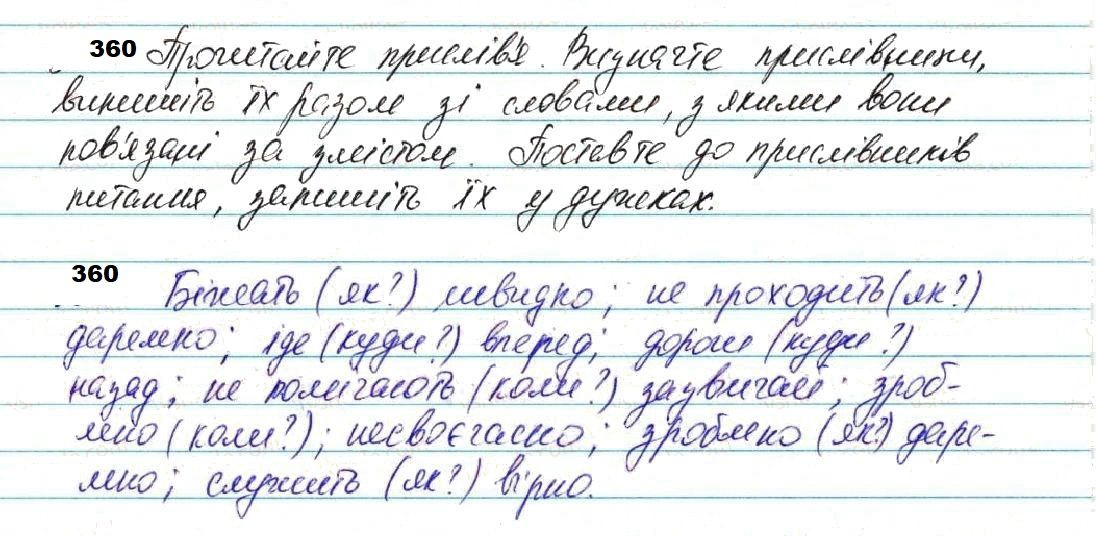 360 Прочитайте прислів'я. Визначте прислівники,
випишіть їх разом зі словами, з якими вони
пов'язані за змістом. Поставте до прислівників
питання, запишіть їх у дужках.
360 Біжать (як?) швидко; не проходить (як?)
даремно; іде (куди?) вперед; дороги (куди?)
назад; не помічають (коли?) зазвичай; зроб-
лено (коли?); несвоєчасно; зроблено (як?) даре-
мно; служить (як?) вірно.